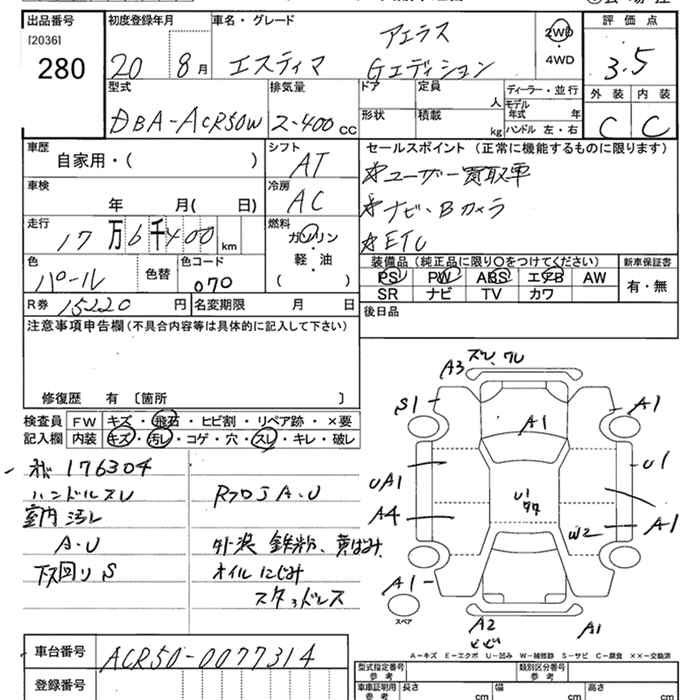 出品番号 初度登録年月 車名・グレード 評価点
[2036]
280
20 8月 エスティマ アエラス Gエディション 2WD ・ 4WD 3.5
型式 排気量 ドア 定員 人 ディーラー・並行 外装 内装
DBA-ACR50W 2-400cc 形状 積載 kg モデル年式 年 ハンドル 左・右 C C
車歴 シフト セールスポイント (正常に機能するものに限ります)
自家用・( ) AT ☆ユーザー買取車
車検 冷房
年 月( 日) AC ☆ナビ、Bカメラ
走行 燃料
17万6千400km ガソリン ☆ETC
軽・油
( )
色 色替 色コード 装備品 (純正品に限り○をつけてください) 新車保証書
パール 070 PS PW ABS エアB AW 有・無
SR ナビ TV カワ
R券 15220円 名変期限 月 日 後日品
注意事項申告欄(不具合内容等は具体的に記入して下さい)
修復歴 有 〔箇所 〕
検査員 FW キズ・飛石・ヒビ割・リペア跡・×要
記入欄 内装 キズ・汚レ・コゲ・穴・スレ・キレ・破レ
176304
ハンドルスレ
室内汚レ
A・U
下回りS
A・U
外装 鉄粉、黄ばみ
オイルにじみ
スタッドレス
A3 ズレ, ワレ
S1 A1 A1
UA1 U1
U1
A4 W2 A1
A1
スペア
A2 A1
A-キズ E-エクボ U-凹み W-補修跡 S-サビ C-腐食 ××-交換済
車台番号 ACR50-0077314
登録番号
型式指定番号 参考 類別区分番号 参考
車車証明用 参考 長さ cm 幅 cm 高さ cm